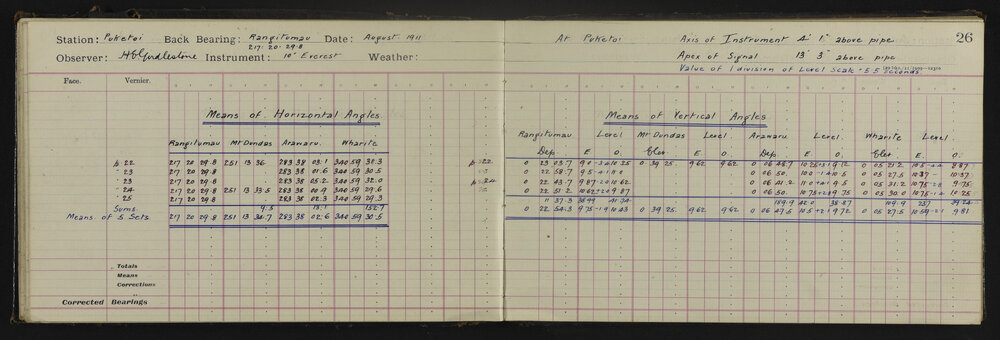 Station: Puketoi Back Bearing: Rangitumau Date: August 1911
217. 20. 29.8
Observer: Instrument: 10" Everest Weather:
At Puketoi Axis of Instrument 4' 1" above pipe 26
Apex of Signal 13' 3" above pipe
Value of 1 division of Level Scale = 5.5 seconds
Face. Vernier.
Means of Horizontal Angles
Rangitumau Mt Dundas Arawaru. Wharite
p. 22 217 20 29.8 251 13 36. 283 38 03.1 340 59 32.3
" 23 217 20 29.8 283 38 01.6 340 59 30.5
" 23 217 20 29.8 283 38 05.2 340 59 32.0
" 24 217 20 29.8 251 13 33.5 283 38 00.9 340 59 29.6
" 25 217 20 29.8 283 38 02.3 340 59 29.3
Sums. 9.5 13.1 152.7
Means of 5 Sets. 217 20 29.8 251 13 34.7 283 38 02.6 340 59 30.5
Totals
Means
Corrections
Corrected Bearings
Means of Vertical Angles
Rangitumau Level Mt Dundas Level. Arawaru Level. Wharite Level
Dep. E. O. Elev. Dep. E. O. Elev. E. O.
p. 22 0 23 03.7 0 39 25. 9.62 9.62 0 06 48.7 0 05 21.2 8.87
0 22 58.7 0 06 50. 0 05 27.5 10.37
p. 24 0 22 43.7 0 06 41.2 0 05 31.2 9.75
0 22 51.2 0 06 50. 0 05 30.0 10.25
11 37.3 38.99 41.74 189.9 42.0 38.87 109.9 39.24
0 22 54.3 9.75 -1.9 10.43 0 39 25. 9.62 9.62 0 06 47.5 10.5 +2.1 9.72 0 05 27.5 10.59 -2.1 9.81